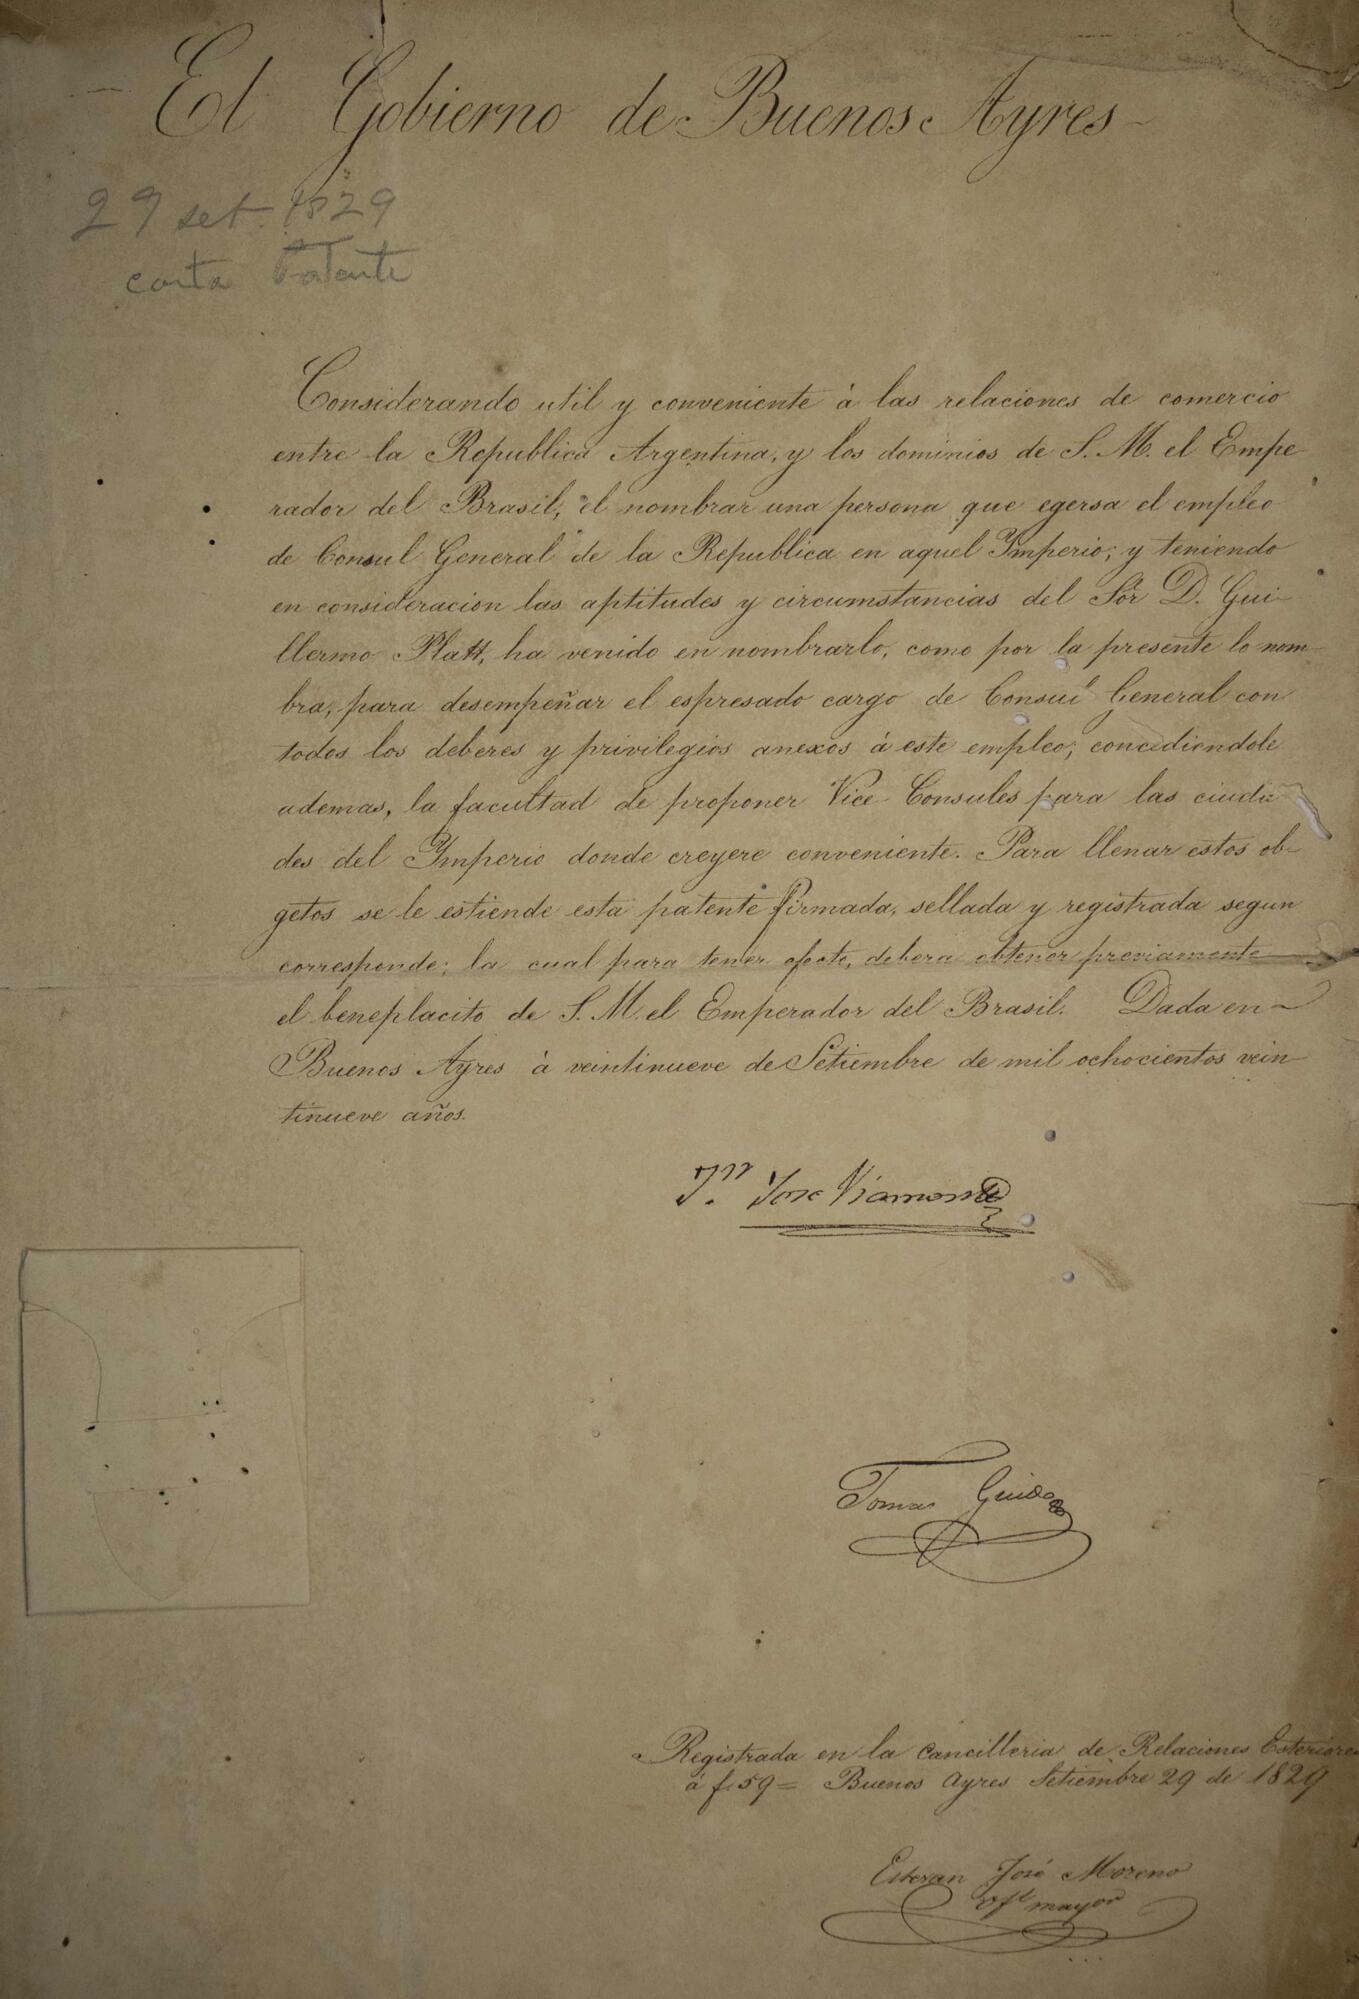 El Gobierno de Buenos Ayres
29 set. 1829
carta Patente
Considerando util y conveniente á las relaciones de comercio
entre la Republica Argentina, y los dominios de S. M. el Empe
rador del Brasil, el nombrar una persona que egersa el empleo
de Consul General de la Republica en aquel Ymperio; y teniendo
en consideracion las aptitudes y circumstancias del Sór D. Gui-
llermo Platt, ha venido en nombrarlo, como por la presente lo nom-
bra, para desempeñar el espresado cargo de Consul General con
todos los deberes y privilegios anexos á este empleo; concediendole
ademas, la facultad de proponer Vice Consules para las ciuda
des del Ymperio donde creyere conveniente. Para llenar estos ob-
getos se le estiende esta patente firmada, sellada y registrada segun
corresponde; la cual para tener efecto, debera obtener previamente
el beneplacito de S. M. el Emperador del Brasil. Dada en
Buenos Ayres á veintinueve de Setiembre de mil ochocientos vein-
tinueve años.
Jn. Jose Viamonte
Tomas Guido
Registrada en la Cancilleria de Relaciones Esteriores
á f. 59 = Buenos Ayres Setiembre 29 de 1829
Estevan José Moreno
Ofl mayor